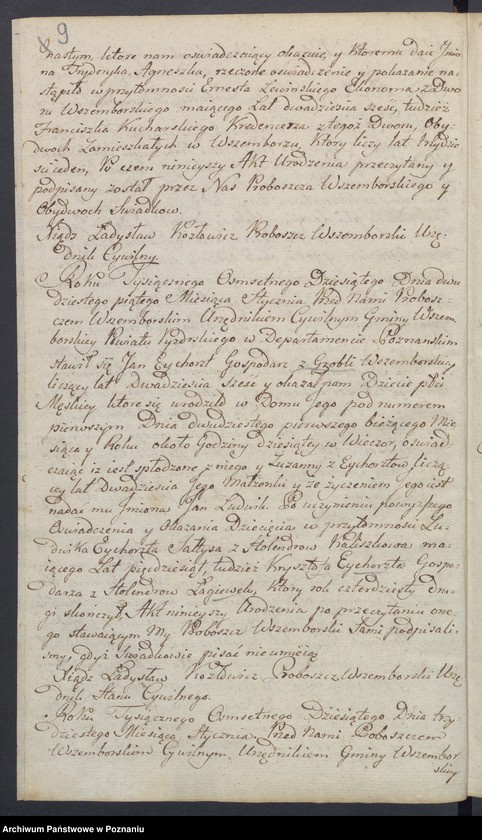 9
nastym, które nam oświadczaiący okazuie, y któremu daie Imio
na Fryderyka, Agneszka, rzeczone oświadczenie y pokazanie na-
stąpiło w przytomności Ernesta Lewińskiego Ekonoma z Dwo
ru Wszemborskiego maiącego Lat dwadzieścia sześć, tudzież
Franciszka Kucharskiego Kredencerza z tegoż Dworu, Oby-
dwoch Zamieszkałych w Wszemborzu, Który liczy lat trzydzie
ści ieden, Po czem ninieyszy Akt Urodzenia przeczytany y
podpisany został przez Nas Proboszcza Wszemborskiego y
Obydwoch Świadkow.
Xiądz Ladysław Kozłowicz Proboszcz Wszemborski Urzę-
dnik Cywilny
Roku Tysiącznego Osmsetnego Dziesiątego Dnia dwu
dziestego piątego Miesiąca Stycznia Przed Nami Probosz-
czem Wszemborskim Urzędnikiem Cywilnym Gminy Wszem
borskiey Powiatu Pyzdrskiego w Departamencie Poznanskim
stawił się Jan Eychorzt Gospodarz z Grobli Wszemborskiey
liczący lat Dwadzieścia sześć y okazał nam Dziecie płci
Męskiey które się urodziło w Domu Jego pod numerem
pierwszym Dnia dwudziestego pierwszego bieżącego Mie
siąca y Roku około Godziny dziesiątey w Wieczor, oświad
czaiąc iż iest spłodzone z niego y Zuzanny z Eychorztow liczą
cey lat Dwadzieścia Jego Małżonki y że życzeniem iego iest
nadać mu Imiona Jan Ludwik. Po uczynieniu powyższego
Oświadczenia y Okazania Dziecięcia w przytomności Lu-
dwika Eychorzta Sałtysa z Holendrow Kaliszkowa ma-
iącego Lat pięćdziesiąt, tudzież Krysztofa Eychorzta Gospo-
darza z Holendrow Łagiewek, Który rok czterdziesty dru-
gi skończył, Akt ninieyszy Urodzenia po przeczytaniu one-
go stawaiącym My Proboszcz Wszemborski Sami podpisali-
śmy, gdyż Świadkowie pisać nieumieią
Xiądz Ladysław Kozłowicz Proboszcz Wszemborski Urzę
dnik Stanu Cywilnego.
Roku Tysiącznego Osmsetnego Dziesiątego Dnia trzy
dziestego Miesiąca Stycznia Przed Nami Proboszczem
Wszemborskim Cywilnym Urzędnikiem Gminy Wszembor
skiey
Archiwum Państwowe w Poznaniu